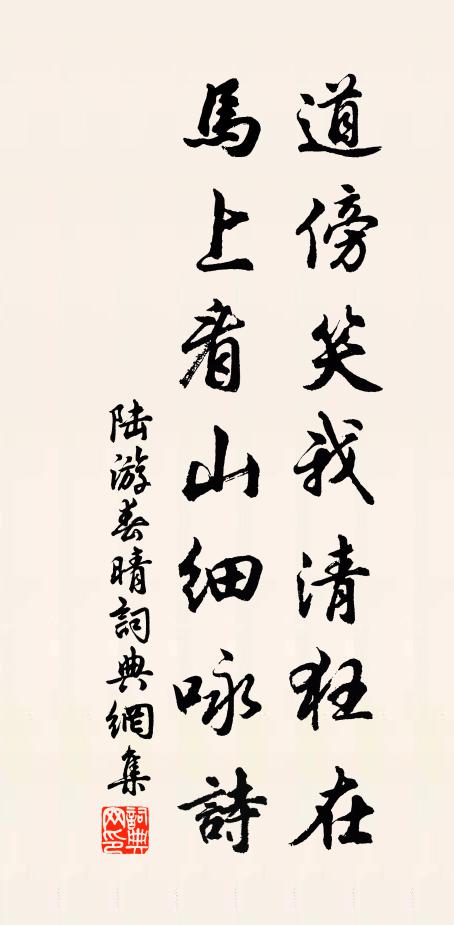 道傍笑我清狂在
馬上看山細咏詩
陆游春晴詞典網集
詞典網印